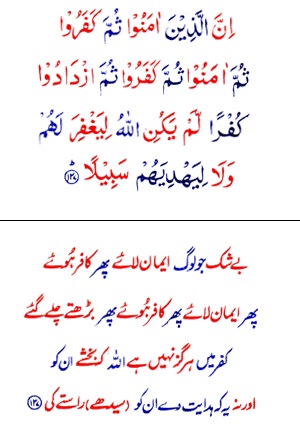 اِنَّ الَّذِيْنَ اٰمَنُوْا ثُمَّ كَفَرُوْا
ثُمَّ اٰمَنُوْا ثُمَّ كَفَرُوْا ثُمَّ ازْدَادُوْا
كُفْرًا لَّمْ يَكُنِ اللهُ لِيَغْفِرَ لَهُمْ
وَلَا لِيَهْدِيَهُمْ سَبِيْلًا ؕ ﴿۱۳۷﴾
بے شک جو لوگ ایمان لائے پھر کافر ہُوئے
پھر ایمان لائے پھر کافر ہُوئے پھر بڑھتے چلے گئے
کفر میں ہرگز نہیں ہے اللہ کہ بخشے ان کو
اور نہ یہ کہ ہدایت دے ان کو (سیدھے) راستے کی ﴿۱۳۷﴾